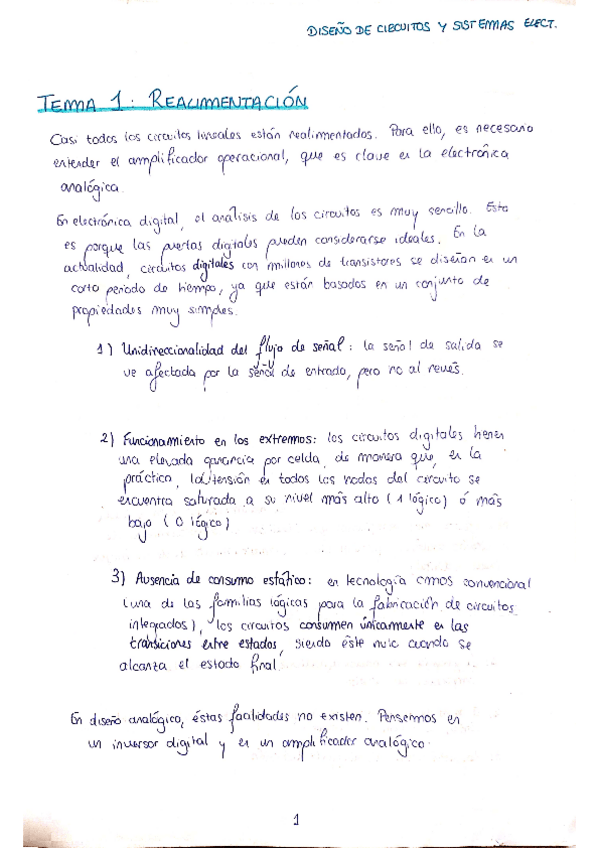 DISEÑO DE CIRCUITOS Y SISTEMAS ELECT.
TEMA 1: REALIMENTACIÓN
Casi todos los circuitos lineales están realimentados. Para ello, es necesario
entender el amplificador operacional, que es clave en la electrónica
analógica.
En electrónica digital, el análisis de los circuitos es muy sencillo. Esto
es porque las puertas digitales pueden considerarse ideales. En la
actualidad, circuitos digitales con millones de transistores se diseñan en un
corto periodo de tiempo, ya que están basados en un conjunto de
propiedades muy simples.
1) Unidireccionalidad del flujo de señal: la señal de salida se
ve afectada por la señal de entrada, pero no al revés.
2) Funcionamiento en los extremos: los circuitos digitales tienen
una elevada ganancia por celda, de manera que, en la
práctica, la tensión en todos los nodos del circuito se
encuentra saturada a su nivel más alto (1 lógico) ó más
bajo (0 lógico)
3) Ausencia de consumo estático: en tecnología CMOS convencional
(una de las familias lógicas para la fabricación de circuitos
integrados), los circuitos consumen únicamente en las
transiciones entre estados, siendo éste nulo cuando se
alcanza el estado final.
En diseño analógico, éstas facilidades no existen. Pensemos en
un inversor digital y en un amplificador analógico.
1